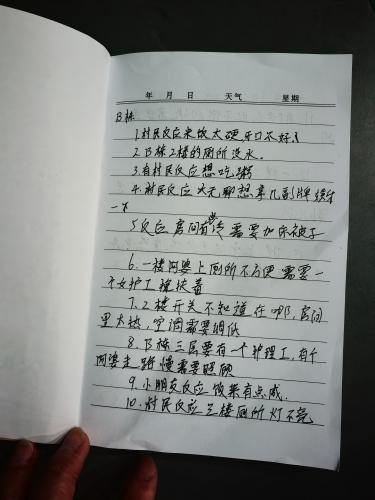 年 月 日 天气 星期
B栋
1.村民反应米饭太硬牙口不好
2.B栋2楼的厕所没水.
3.有村民反应想吃粥
4.村民反应太无聊想拿几副牌娱乐
一下
5.反应房间有冷需要加床被子
6.一楼阿婆上厕所不方便需要一
个女护工搀扶着
7.2楼开关不知道在哪,房间
里太热,空调需要调低
8.B栋三层要有一个护理工,有个
阿婆走路慢需要照顾
9.小朋友反应饭菜有点咸.
10.村民反应三楼厕所灯不亮